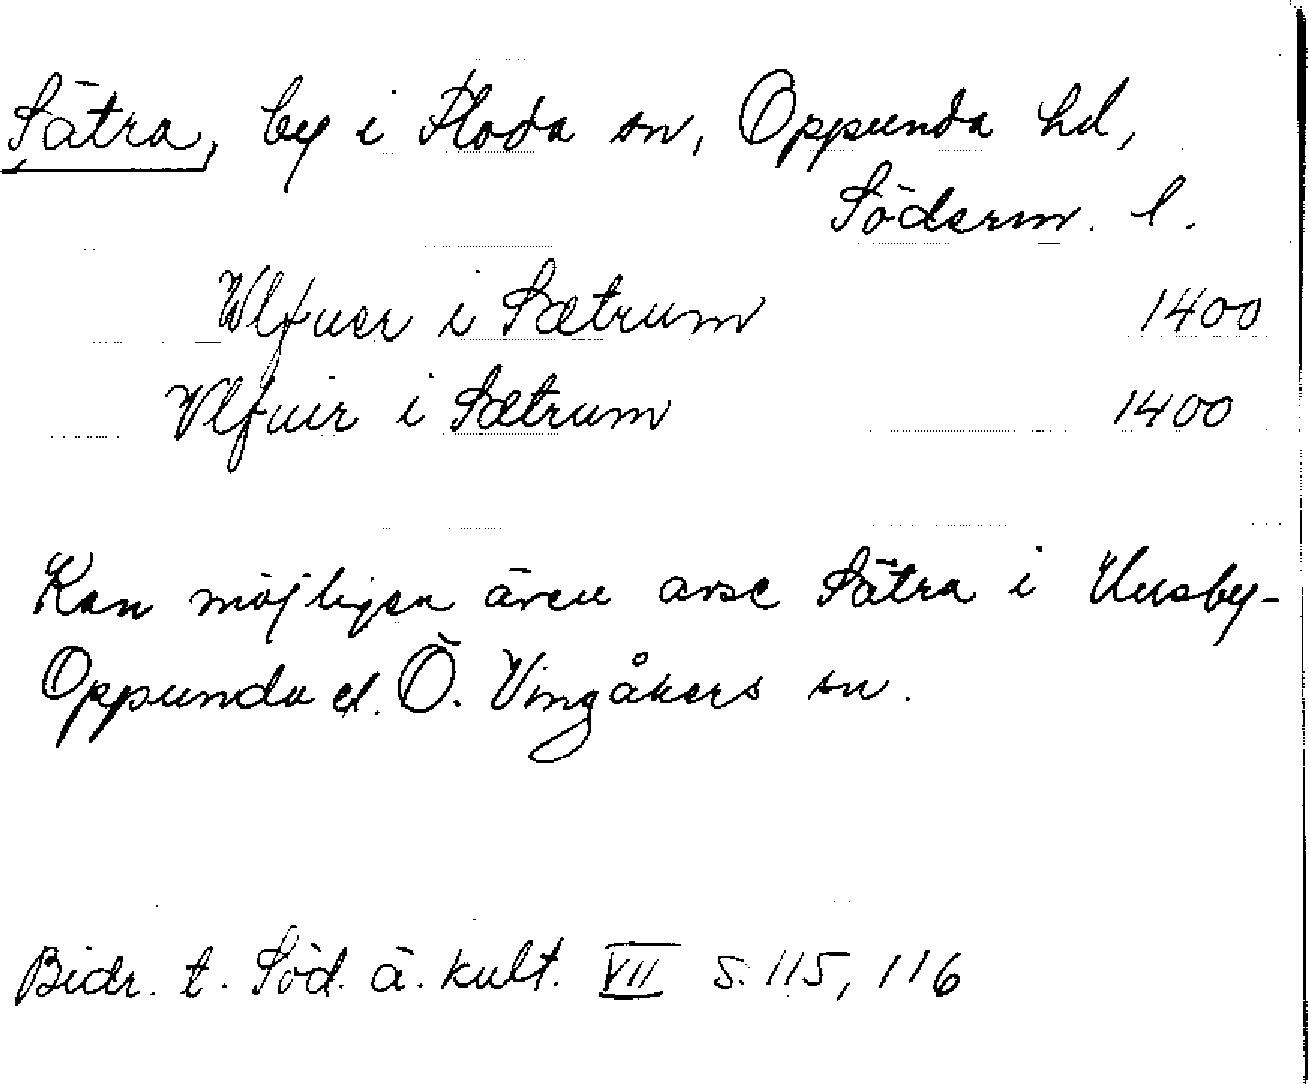 Sätra, by i Floda sn, Oppunda hd,
Söderm. l.
Wlfuer i Sætrum 1400
Vlfuir i Sætrum 1400
Kan möjligen även avse Sätra i Husby-
Oppunda el. Ö. Vingåkers sn.
Bidr. t. Söd. ä. kult. VII s. 115, 116